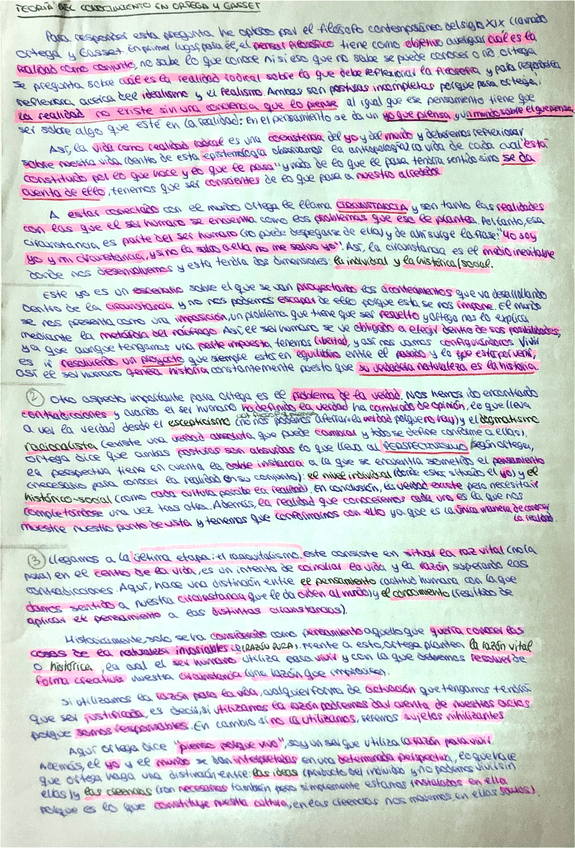 TEORÍA DEL CONOCIMIENTO EN ORTEGA Y GASSET
Para responder esta pregunta he optado por el filósofo contemporáneo del siglo XIX llamado
Ortega y Gasset. En primer lugar, para él, el pensar filosófico tiene como objetivo averiguar cuál es la
realidad como conjunto, no sabe lo que conoce ni si eso que no sabe se puede conocer o no. Ortega
se pregunta sobre cuál es la realidad radical sobre la que debe reflexionar la filosofía, y para responderla
reflexiona acerca del idealismo y el realismo. Ambas son posturas incompletas porque para Ortega:
la realidad no existe sin una conciencia que lo piense al igual que ese pensamiento tiene que
ser sobre algo que esté en la realidad: En el pensamiento se da un yo que piensa y un mundo sobre el que piensa.
Así, la vida como realidad radical es una coexistencia del yo y del mundo y debemos reflexionar
sobre nuestra vida dentro de esta epistemología observamos la antropología: la vida de cada cual está
constituida por lo que hace y lo que le pasa" y nada de lo que le pasa tendría sentido sino se da
cuenta de ello, tenemos que ser conscientes de lo que pasa a nuestro alrededor.
A estar conectado con el mundo Ortega le llama CIRCUNSTANCIA y son tanto las realidades
con las que el ser humano se encuentra como los problemas que ese le plantea. Por tanto, esa
circunstancia es parte del ser humano (no puede despegarse de ella) y de ahí surge la frase: "Yo soy
yo y mi circunstancia, y si no la salvo a ella no me salvo yo". Así, la circunstancia es el medio inevitable
donde nos desenvolvemos y esta tendría dos dimensiones: la individual y la histórica/social.
Este yo es un escenario sobre el que se van proyectando los acontecimientos que va desarrollando
dentro de la circunstancia y no nos podemos escapar de ello porque esta se nos impone. El mundo
se nos presenta como una imposición, un problema que tiene que ser resuelto y Ortega nos lo explica
mediante la metáfora del náufrago. Así, el ser humano se ve obligado a elegir dentro de sus posibilidades,
ya que aunque tengamos una parte impuesta tenemos libertad, y así nos vamos configurándonos. Vivir
es ir resolviendo un proyecto que siempre está en equilibrio entre el pasado y lo que está por venir,
así el ser humano genera historia constantemente puesto que su verdadera naturaleza es la historia.
② Otro aspecto importante para Ortega es el problema de la verdad. Nos hemos ido encontrando
contradicciones y cuando el ser humano ha definido la verdad ha cambiado de opinión, lo que lleva
a ver la verdad desde el escepticismo (no nos podemos aferrar a la verdad porque no hay) y el dogmatismo
racionalista (existe una verdad absoluta que puede cambiar y todo se define conforme a ella).
Ortega dice que ambas posturas son absurdas lo que lleva al PERSPECTIVISMO. Según Ortega,
la perspectiva tiene en cuenta la doble instancia a la que se encuentra sometido el pensamiento
(necesario para conocer la realidad en su conjunto): el nivel individual (dónde está situado el yo) y el
histórico-social (como cada cultura percibe la realidad). En conclusión, la verdad existe pero necesita ir
completándose una vez tras otra. Además, la realidad que conocemos cada uno es la que nos
muestre nuestro punto de vista y tenemos que conformarnos con ello ya que es la única manera de conocer
la realidad
③ Llegamos a la última etapa: el raciovitalismo, este consiste en situar la raz vital (no la
pura) en el centro de la vida, es un intento de conciliar la vida y la razón superada las
contradicciones. Aquí, hace una distinción entre el pensamiento (actitud humana con la que
damos sentido a nuestra circunstancia que le da orden al mundo) y el conocimiento (resultado de
aplicar el pensamiento a las distintas circunstancias).
Históricamente, solo se ha considerado como pensamiento aquello que quería conocer las
cosas de la naturaleza invariables (RAZÓN PURA). Frente a esto, Ortega plantea, la razón vital
o histórica, la cual el ser humano utiliza para vivir y con la que debemos resolver de
forma creativa nuestra circunstancia (una razón que improvisa).
Si utilizamos la razón para la vida, cualquier forma de actuación que tengamos tendrá
que ser justificada, es decir, si utilizamos la razón podremos dar cuenta de nuestros actos
porque somos responsables. En cambio si no la utilizamos, seremos sujetos nihilizantes
Aquí Ortega dice "pienso porque vivo", soy un ser que utiliza la razón para vivir.
Además, el yo y el mundo se han interpretado en una determinada perspectiva, lo que hace
que Ortega haga una distinción entre: las ideas (producto del individuo y no podemos vivir sin
ellas) y las creencias (son necesarias también pero simplemente estamos instalados en ella
porque es lo que constituye nuestra cultura, en las creencias nos movemos en ellas